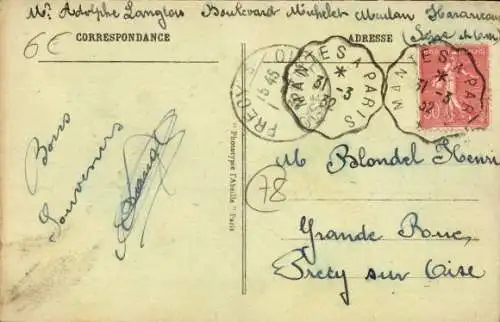 Mr. Adolphe Langlois Boulevard Michelet Meulan Hardricourt
(Seine et Oise)
6€
CORRESPONDANCE
ADRESSE
MANTES A PARIS
*
31
-3
32
MANTES A PARIS
*
31
-3
32
15 45
Bons
Souvenirs
" Phototypie l'Abeille " Paris
M Blondel Henri
78
Grande Rue,
Précy sur Oise